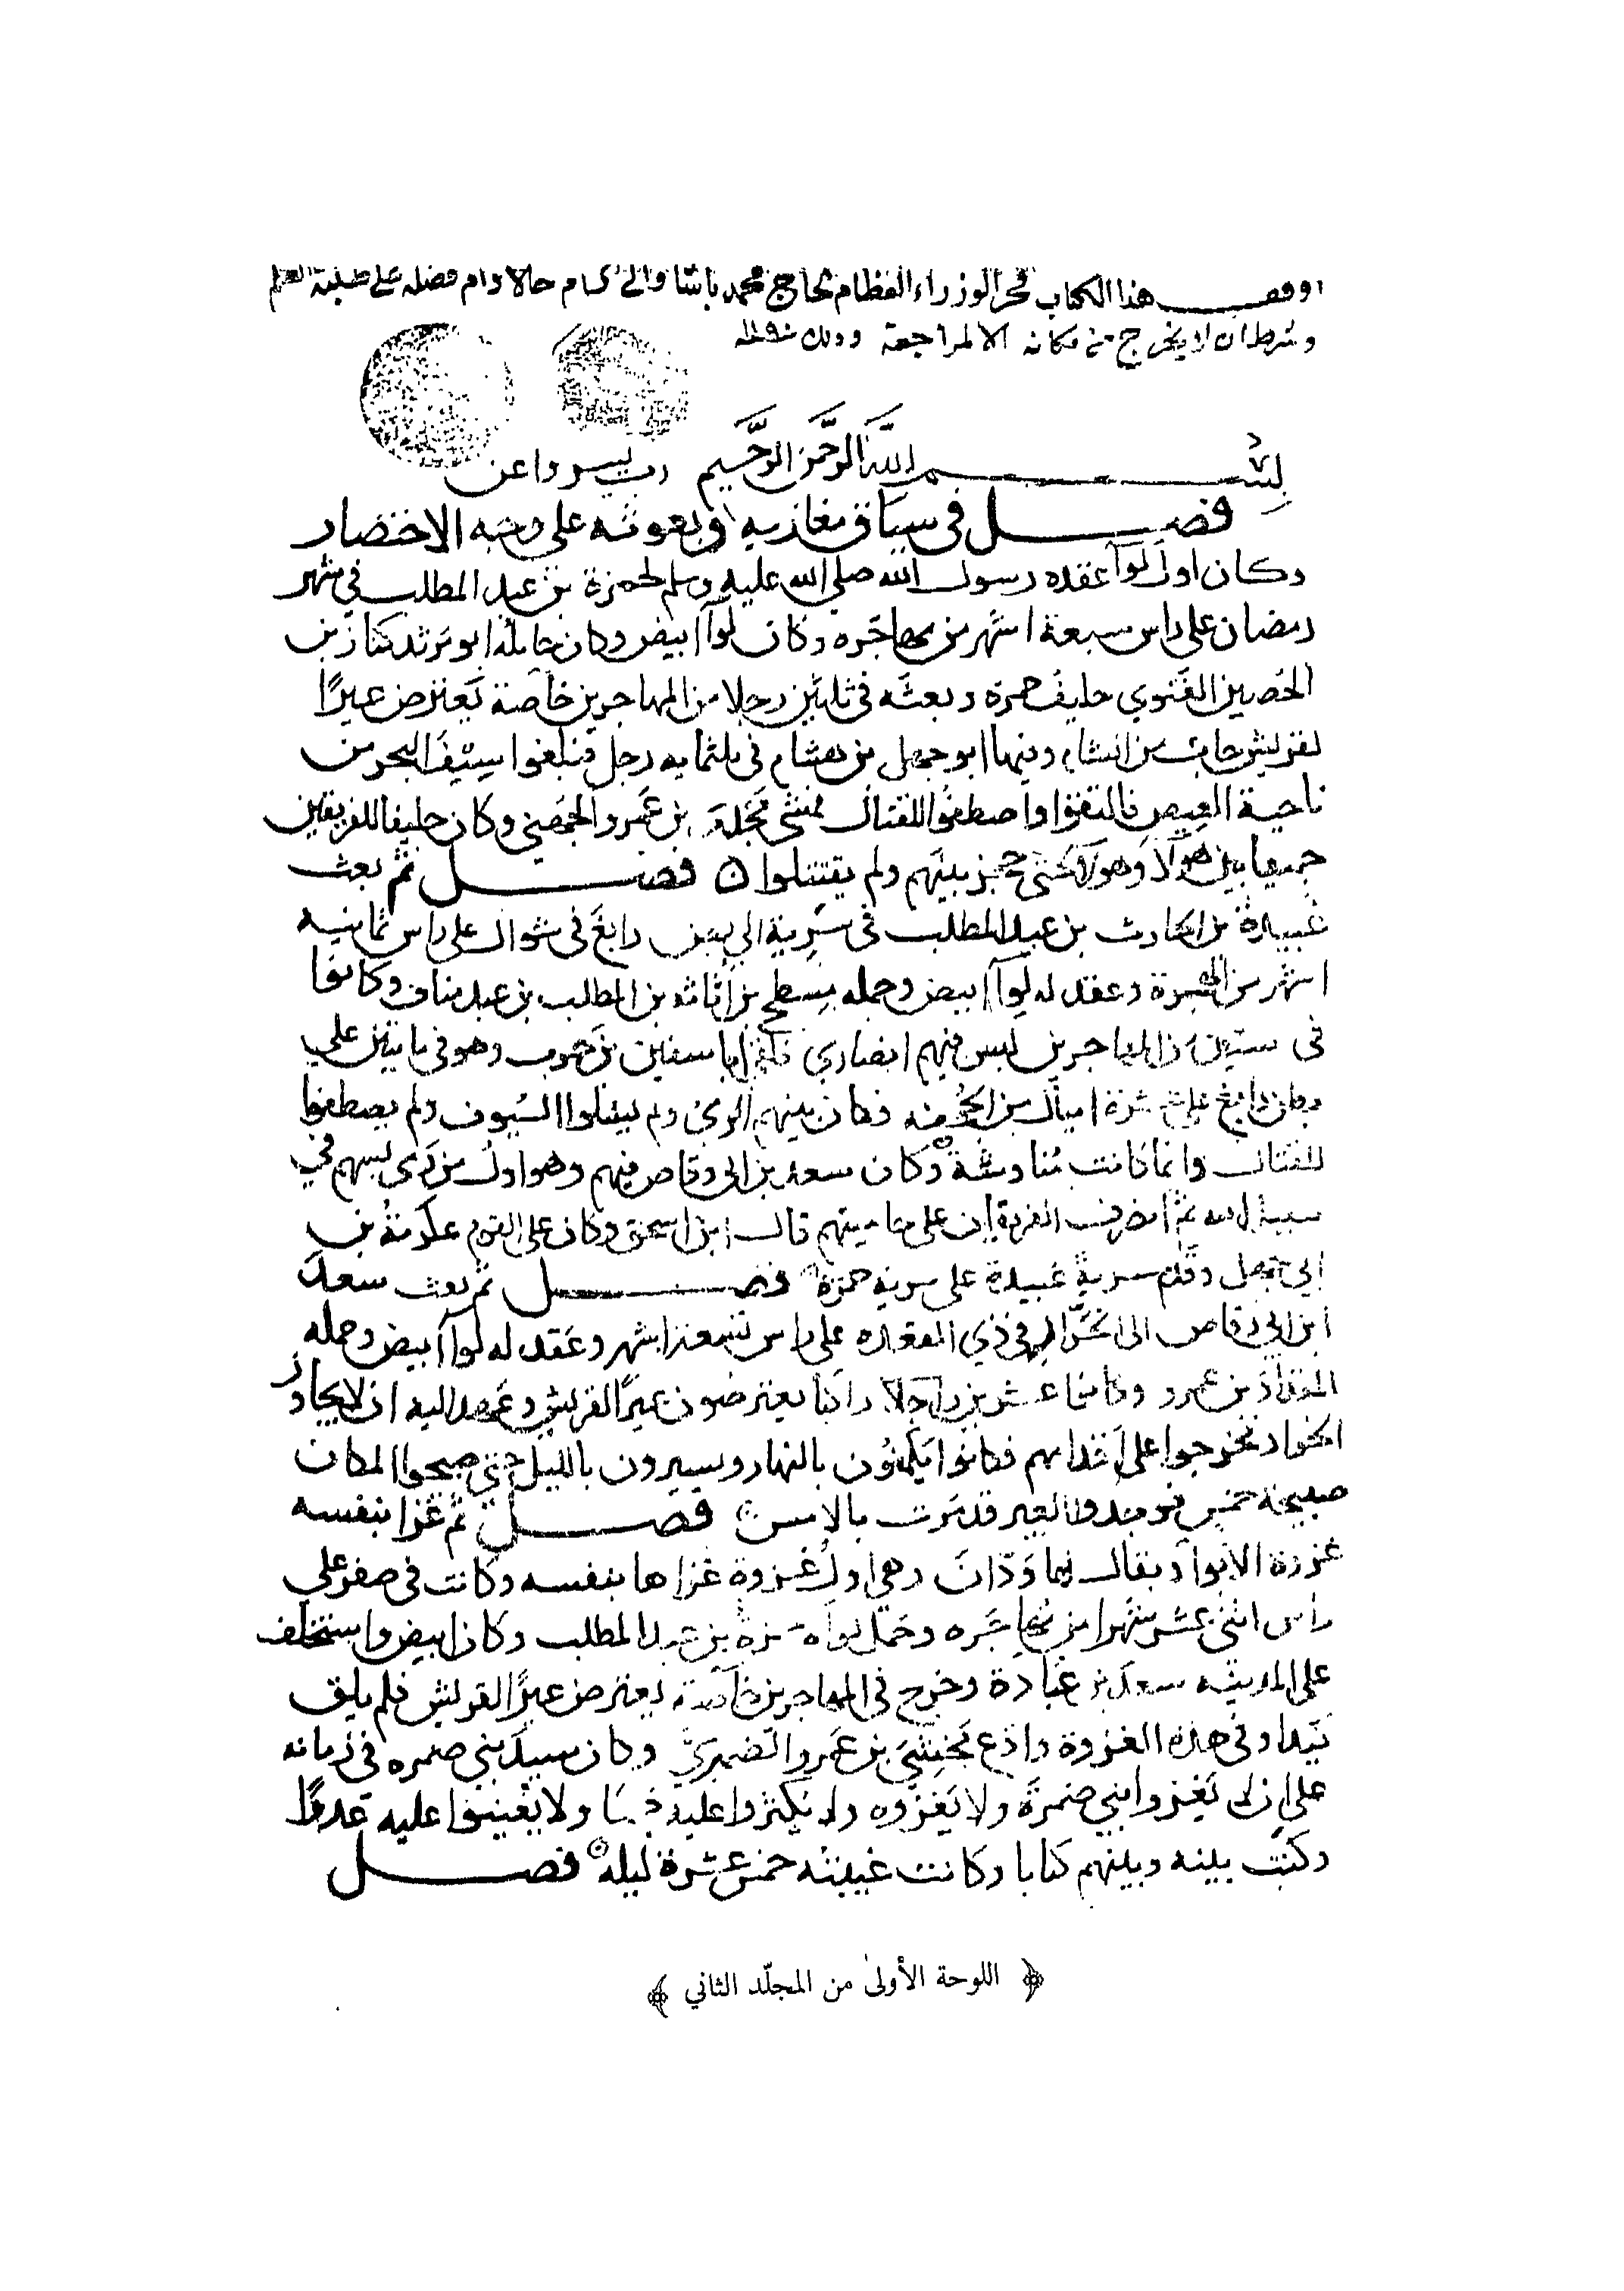 اوقف هذا الكتاب فخر الوزراء العظام الحاج محمد باشا والي الشام حالا دام فضله على طلبة العلم
وشرط ان لا يخرج من مكانه الا لمراجعة وذلك سنة
بسم الله الرحمن الرحيم رب يسر واعن
فصل في سياق مغازيه وبعوثه على وجه الاختصار
وكان اول لوآ عقده رسول الله صلى الله عليه وسلم لحمزة بن عبد المطلب في شهر
رمضان على راس سبعة اشهر من مهاجره وكان لوآ ابيض وكان حامله ابو مرثد كناز بن
الحصين الغنوي حليف حمزة وبعثه في ثلثين رجلا من المهاجرين خاصة يعترض عيرًا
لقريش جات من الشام وفيها ابو جهل بن هشام في ثلثمايه رجل فبلغوا سيف البحر من
ناحية العيص فالتقوا واصطفوا للقتال فمشى مجدي بن عمرو الجهني وكان حليفا للفريقين
جميعا بين هولآ وهولآ حتى حجز بينهم ولم يقتتلوا ن فصل ثم بعث
عبيدة بن الحارث بن عبد المطلب في سرية الى بطن رابغ في شوال على راس ثمانيه
اشهر من الهجرة وعقد له لوآ ابيض وحمله مسطح بن اثاثه بن المطلب بن عبد مناف وكانوا
في ستين من المهاجرين ليس فيهم انصاري فلقي ابا سفين بن حرب وهو في مايتين على
بطن رابغ على عشرة اميال من الجحفه فكان بينهم الرمي ولم يسلوا السيوف ولم يصطفوا
للقتال وانما كانت مناوشة وكان سعد بن ابي وقاص فيهم وهو اول من رمى بسهم في
سبيل الله ثم انصرف الفريقان على حاميتهم قال ابن اسحق وكان على القوم عكرمة بن
ابي جهل وقدم سرية عبيدة على سرية حمزة فصل ثم بعث سعد
ابن ابي وقاص الى الخرّار في ذي القعده على راس تسعة اشهر وعقد له لوآ ابيض وحمله
المقداد بن عمرو وكانوا عشرين راكبا يعترضون عيرًا لقريش وعهد اليه ان لا يجاوز
الخرار فخرجوا على اقدامهم فكانوا يكمنون بالنهار ويسيرون بالليل حتى صبحوا المكان
صبيحة خمس فوجدوا العير قد مرت بالامس فصل ثم غزا بنفسه
غزوة الابوآ ويقال لها ودّانَ وهي اول غزوة غزاها بنفسه وكانت في صفر على
راس اثني عشر شهرا من مهاجره وحمل لوآه حمزة بن عبد المطلب وكان ابيض واستخلف
على المدينه سعد بن عبادة وخرج في المهاجرين خاصة يعترض عيرًا لقريش فلم يلق
كيدا وفي هذه الغزوة وادع مخشي بن عمرو الضمري وكان سيد بني ضمره في زمانه
على ان لا يغزوا بني ضمرة ولا يغزوه ولا يكثروا عليه جمعا ولا يعينوا عليه عدوًا
وكتب بينه وبينهم كتابا وكانت غيبته خمس عشرة ليله فصل
﴿ اللوحة الأولى من المجلّد الثاني ﴾